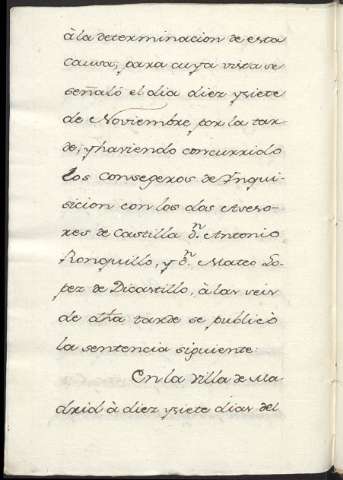 à la determinacion de esta
causa; para cuya vista se
señaló el dia diez y siete
de Noviembre por la tar-
de; y haviendo concurrido
los Consegeros de Ynqui-
sicion con los dos Aseso-
res de Castilla Dn. Antonio
Ronquillo, y Dn. Mateo Lo-
pez de Dicastillo, à las seis
de dha tarde se publicò
la sentencia siguiente:
En la Villa de Ma-
drid à diez y siete dias del